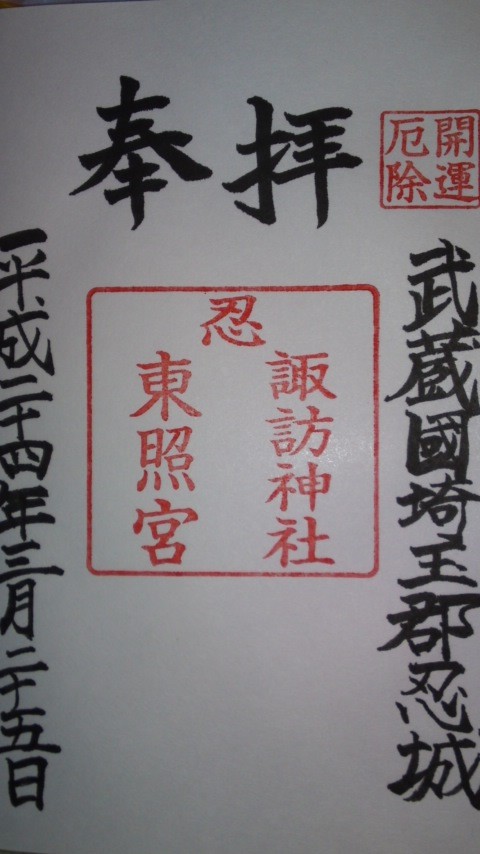 開運
厄除
武蔵國埼玉郡忍城
拝奉
忍
諏訪神社
東照宮
平成二十四年三月二十五日